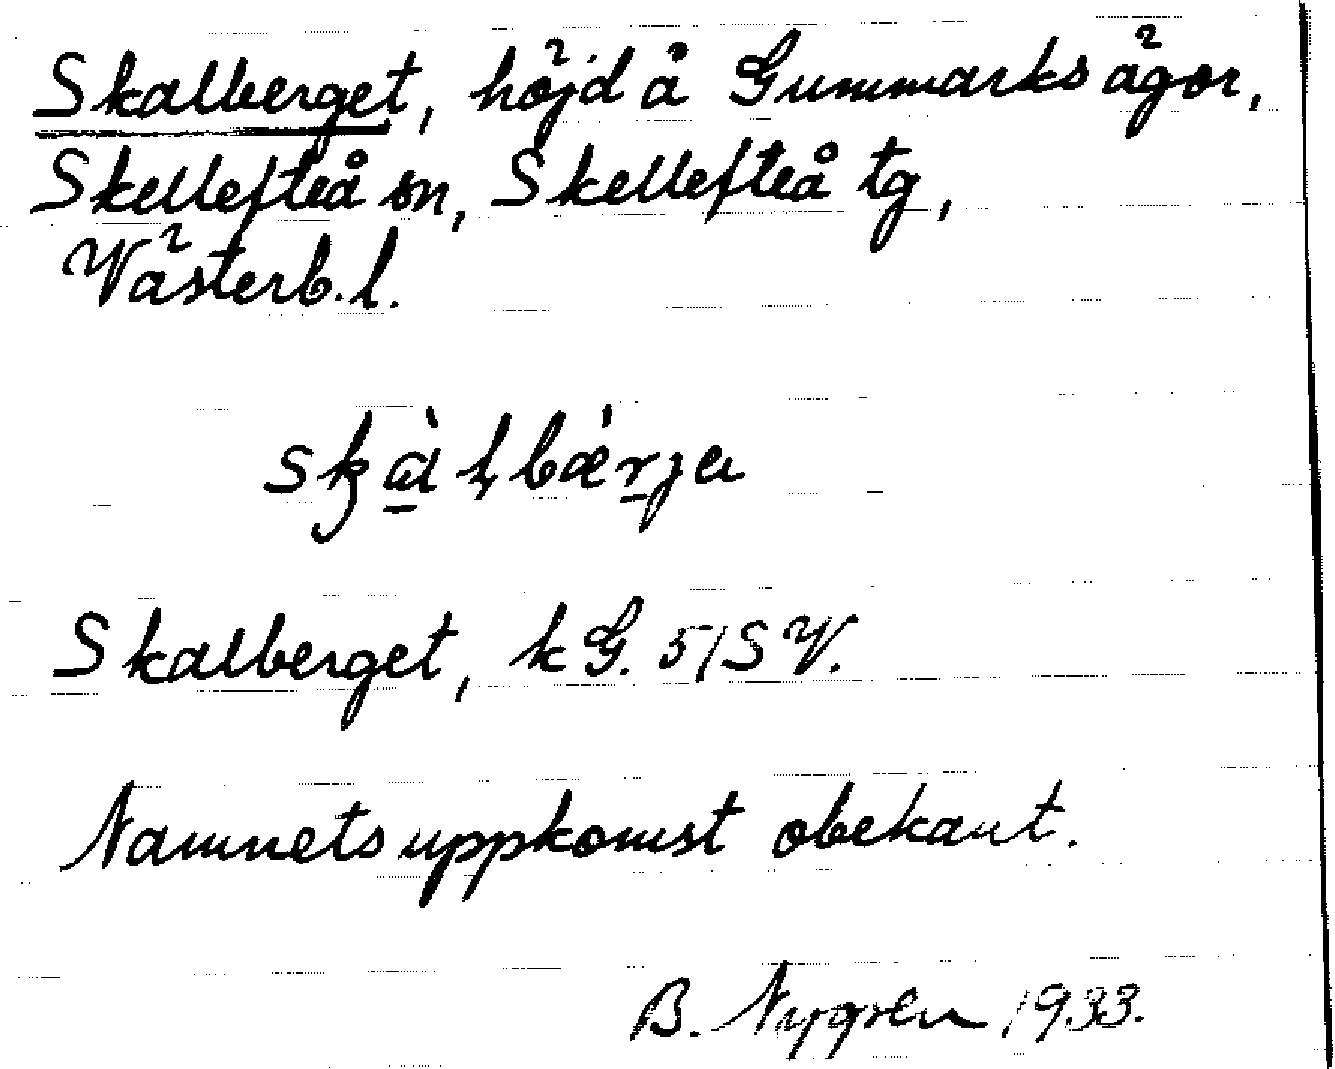 Skalberget, höjd å Gummarks ägor,
Skellefteå sn, Skellefteå tg,
Västerb. l.
Skalberget, kG. 51SV.
Namnets uppkomst obekant.
B. Nygren 1933.